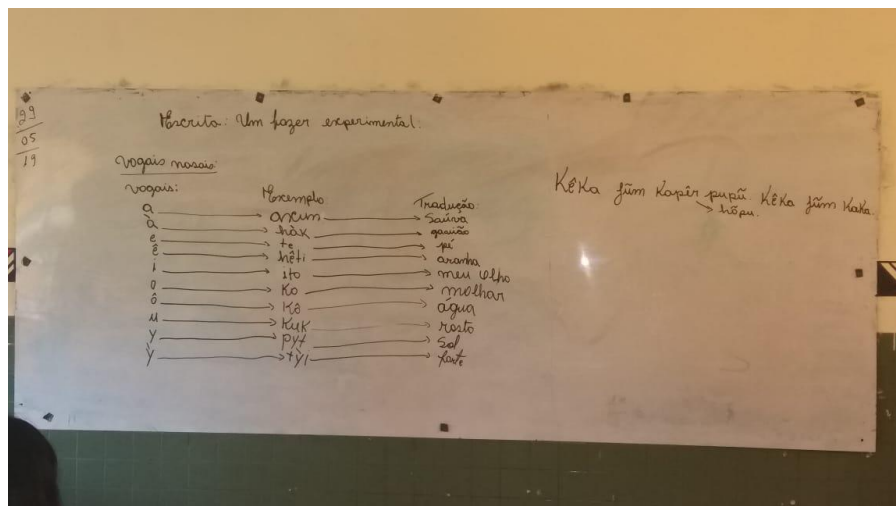 29
05
19
Escrita: Um fazer experimental.
Vogais nasais:
Vogais: Exemplo Tradução:
a axun saúva
à hàk gavião
e te pé
ê hêti aranha
i ito meu olho
o ko molhar
ô kô água
u kuk rosto
y pyt sol
ỳ tỳi forte
Kêka jũm kapêr pupũ. Kêka jũm kaka.
hõpu.